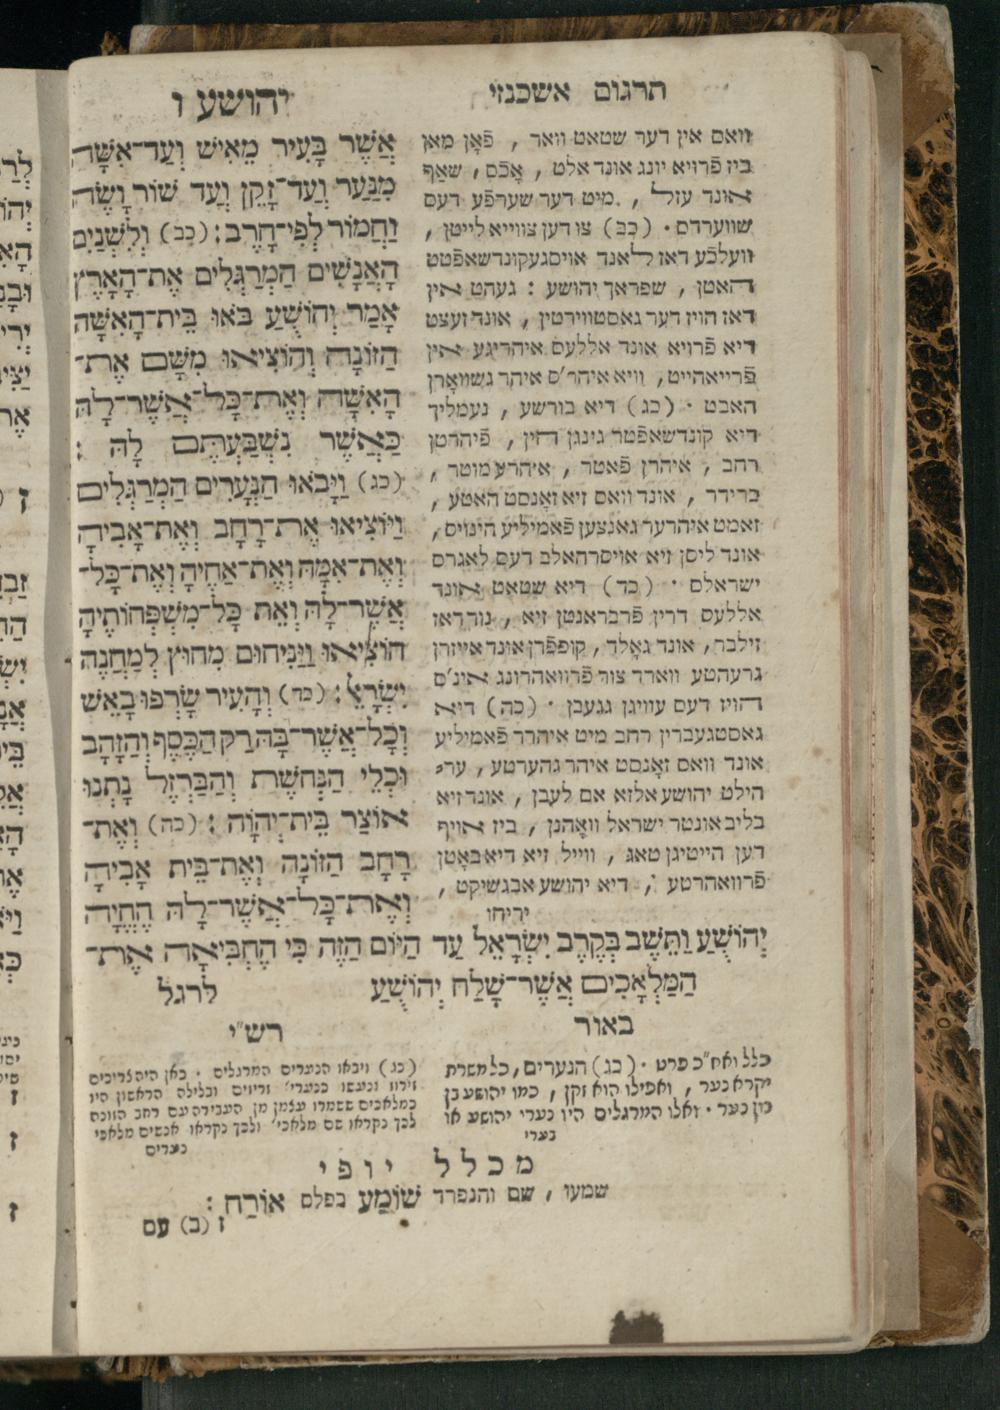 תרגום אשכנזי
יהושע ו
וואס אין דער שטאט וואר, פֿאָן מאן
ביז פֿרויא יונג אונד אלט, אָכֿס, שאַף
אונד עזל, מיט דער שערפֿע דעס
שווערדס. (כב) צו דען צווייא לייטן,
וועלכֿע דאז לאנד אויסגעקונדשאפֿטט
האטן, שפראך יהושע: געהט אין
דאז הויז דער גאסטווירטין, אונד זעצט
דיא פֿרויא אונד אללעס איהריגע אין
פֿרייאהייט, וויא איהר'ס איהר גשוואָרן
האבט. (כג) דיא בורשע, נעמליך
דיא קונדשאפֿטר גינגן הין, פֿיהרטן
רחב, איהרן פֿאטר, איהרע מוטר,
ברידר, אונד וואס זיא זאָנסט האטע,
זאמט איהרער גאנצען פֿאמיליע הינויס,
אונד ליסן זיא אויסרהאלב דעס לאגרס
ישראלס. (כד) דיא שטאט אונד
אללעס דרין פֿרבראנטן זיא, נור דאז
זילבר, אונד גאָלד, קופפֿרן אונד אייזרן
גרעהטע ווארד צור פֿרוואהרונג אינ'ס
הויז דעס עוויגן גגעבן. (כה) דיא
גאסטגעברין רחב מיט איהרר פֿאמיליע
אונד וואס זאָנסט איהר גהערטע, ער
הילט יהושע אלזא אם לעבן, אונד זיא
בליב אונטר ישראל וואָהנן, ביז אויף
דען הייטיגן טאג, ווייל זיא דיא באָטן
פֿרוואהרטע, דיא יהושע אבגשיקט,
יריחו
אֲשֶׁר בָּעִיר מֵאִישׁ וְעַד־אִשָּׁה
מִנַּעַר וְעַד־זָקֵן וְעַד שׁוֹר וָשֶׂה
וַחֲמוֹר לְפִי־חָרֶב: (כב) וְלִשְׁנַיִם
הָאֲנָשִׁים הַמְרַגְּלִים אֶת־הָאָרֶץ
אָמַר יְהוֹשֻׁעַ בֹּאוּ בֵּית־הָאִשָּׁה
הַזּוֹנָה וְהוֹצִיאוּ מִשָּׁם אֶת־
הָאִשָּׁה וְאֶת־כָּל־אֲשֶׁר־לָהּ
כַּאֲשֶׁר נִשְׁבַּעְתֶּם לָהּ:
(כג) וַיָּבֹאוּ הַנְּעָרִים הַמְרַגְּלִים
וַיּוֹצִיאוּ אֶת־רָחָב וְאֶת־אָבִיהָ
וְאֶת־אִמָּהּ וְאֶת־אַחֶיהָ וְאֶת־כָּל־
אֲשֶׁר־לָהּ וְאֵת כָּל־מִשְׁפְּחוֹתֶיהָ
הוֹצִיאוּ וַיַּנִּיחוּם מִחוּץ לְמַחֲנֵה
יִשְׂרָאֵל: (כד) וְהָעִיר שָׂרְפוּ בָאֵשׁ
וְכָל־אֲשֶׁר־בָּהּ רַק הַכֶּסֶף וְהַזָּהָב
וּכְלֵי הַנְּחֹשֶׁת וְהַבַּרְזֶל נָתְנוּ
אוֹצַר בֵּית־יְהוָֹה: (כה) וְאֶת־
רָחָב הַזּוֹנָה וְאֶת־בֵּית אָבִיהָ
וְאֶת־כָּל־אֲשֶׁר־לָהּ הֶחֱיָה
יְהוֹשֻׁעַ וַתֵּשֶׁב בְּקֶרֶב יִשְׂרָאֵל עַד הַיּוֹם הַזֶּה כִּי הֶחְבִּיאָה אֶת־
הַמַּלְאָכִים אֲשֶׁר־שָׁלַח יְהוֹשֻׁעַ לרגל
באור
כלל ואח"כ פרט. (כג) הנערים, כל משרת
יקרא נער, ואפילו הוא זקן, כמו יהושע בן
נון נער. ואלו המרגלים היו נערי יהושע או
נערי
רש"י
(כג) ויבאו הנערים המרגלים. כאן היה צריכים
זירוז ונעשו כנערי' זריזים ובלילה הראשון היו
כמלאכים ששמרו עצמן מן העבירה עם רחב הזונה
לכך נקראו שם מלאכי' ולכך נקראו אנשים מלאכי
נערים
מכלל יופי
שמעו, שם והנפרד שׁוֹמַע בפלס אוֹרַח:
ז (ב) עם